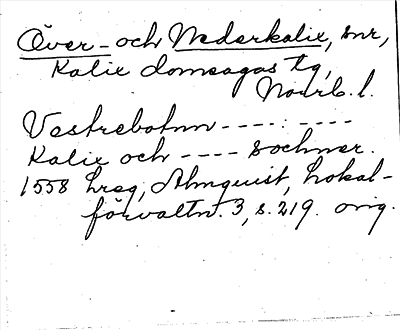 Över- och Nederkalix, snr,
Kalix domsagas tg,
Norrb. l.
Vestrebotnn ---- : ----
Kalix och ---- sochner.
1558 hreg, Almquist, Lokal-
förvaltn. 3, s. 219. orig.